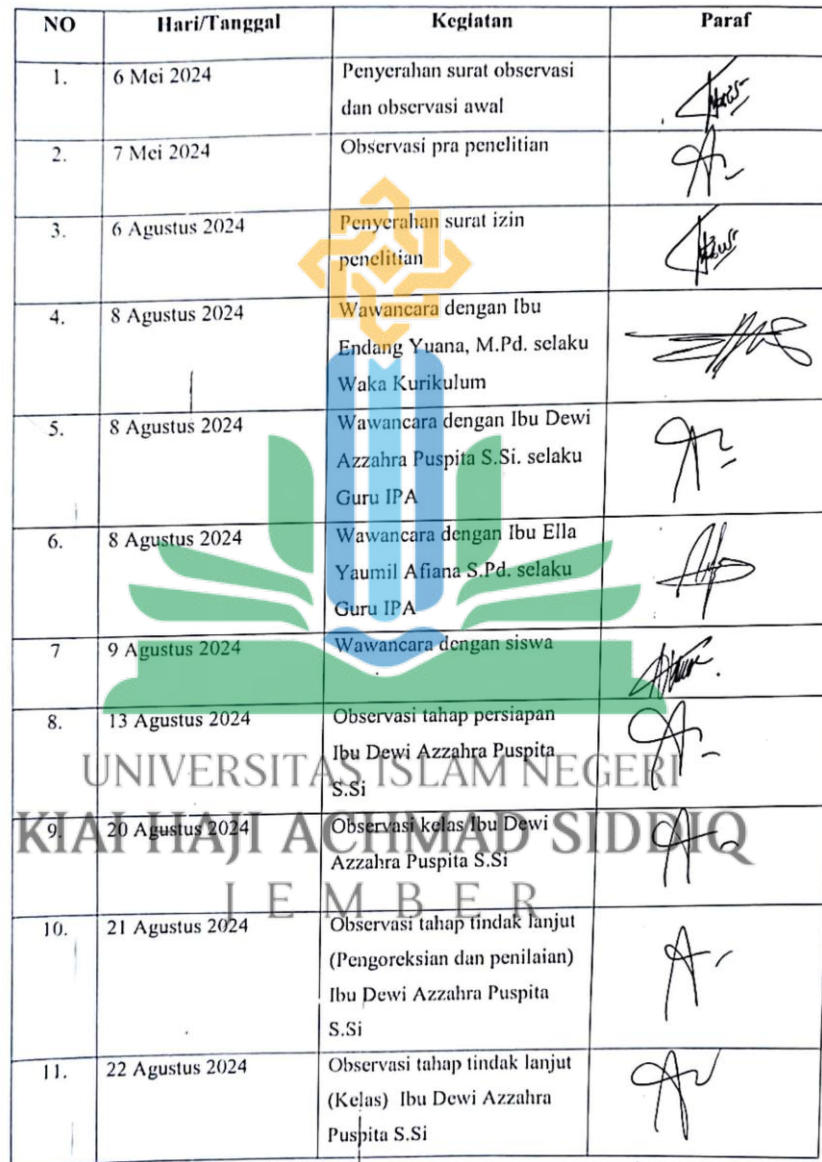 NO Hari/Tanggal Kegiatan Paraf
1. 6 Mei 2024 Penyerahan surat observasi
dan observasi awal
2. 7 Mei 2024 Observasi pra penelitian
3. 6 Agustus 2024 Penyerahan surat izin
penelitian
4. 8 Agustus 2024 Wawancara dengan Ibu
Endang Yuana, M.Pd. selaku
Waka Kurikulum
5. 8 Agustus 2024 Wawancara dengan Ibu Dewi
Azzahra Puspita S.Si. selaku
Guru IPA
6. 8 Agustus 2024 Wawancara dengan Ibu Ella
Yaumil Afiana S.Pd. selaku
Guru IPA
7 9 Agustus 2024 Wawancara dengan siswa
8. 13 Agustus 2024 Observasi tahap persiapan
Ibu Dewi Azzahra Puspita
S.Si
UNIVERSITAS ISLAM NEGERI
9. 20 Agustus 2024 Observasi kelas Ibu Dewi
Azzahra Puspita S.Si
KIAI HAJI ACHMAD SIDDIQ
JEMBER
10. 21 Agustus 2024 Observasi tahap tindak lanjut
(Pengoreksian dan penilaian)
Ibu Dewi Azzahra Puspita
S.Si
11. 22 Agustus 2024 Observasi tahap tindak lanjut
(Kelas) Ibu Dewi Azzahra
Puspita S.Si